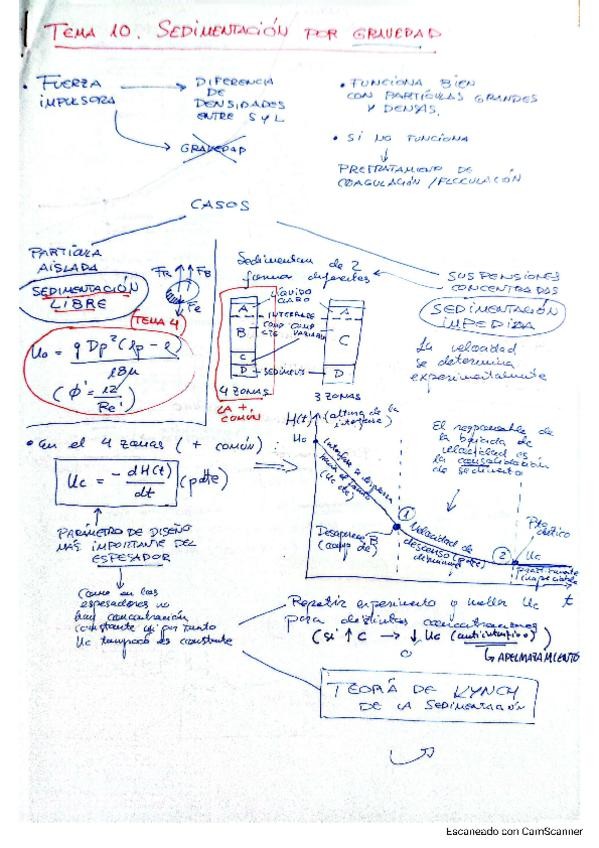 TEMA 10. SEDIMENTACIÓN POR GRAVEDAD
• FUERZA
IMPULSORA
DIFERENCIA
DE
DENSIDADES
ENTRE S y L
GRAVEDAD
• FUNCIONA BIEN
CON PARTÍCULAS GRANDES
Y DENSAS.
• SI NO FUNCIONA
PRETRATAMIENTO DE
COAGULACIÓN / FLOCULACIÓN
CASOS
PARTÍCULA
AISLADA
SEDIMENTACIÓN
LIBRE
FR
FB
TEMA 4
U0 = g Dp² (ρp - ρ) / 18μ
(Φ' = 12 / Re')
Sedimentan de 2
formas diferentes
LÍQUIDO
CLARO
A
INTERFASE
B
COMP
CTE
COMP
VARIABLE
C
D
SEDIMENTO
4 ZONAS
LA +
COMÚN
A
C
D
3 ZONAS
SUSPENSIONES
CONCENTRADAS
SEDIMENTACIÓN
IMPEDIDA
La velocidad
se determina
experimentalmente
• En el 4 zonas (+ común):
Uc = - dH(t) / dt (pdte)
PARÁMETRO DE DISEÑO
MÁS IMPORTANTE DEL
ESPESADOR
Como en los
espesadores no
hay concentración
constante
Uc tampoco es constante
H(t) (altura de la
interfase)
H0
(Uc cte)
Desaparece B
1
Velocidad de
descenso (pdte)
disminuye
El responsable de
la bajada de
velocidad es
la consolidación
de sedimento
2
Pto crítico
Uc
t
Repetir experimento y hallar Uc
para distintas concentraciones
(si ↑ C → ↓ Uc (antiintuitivo))
↳ APELMAZAMIENTO
TEORÍA DE KYNCH
DE LA SEDIMENTACIÓN
Escaneado con CamScanner